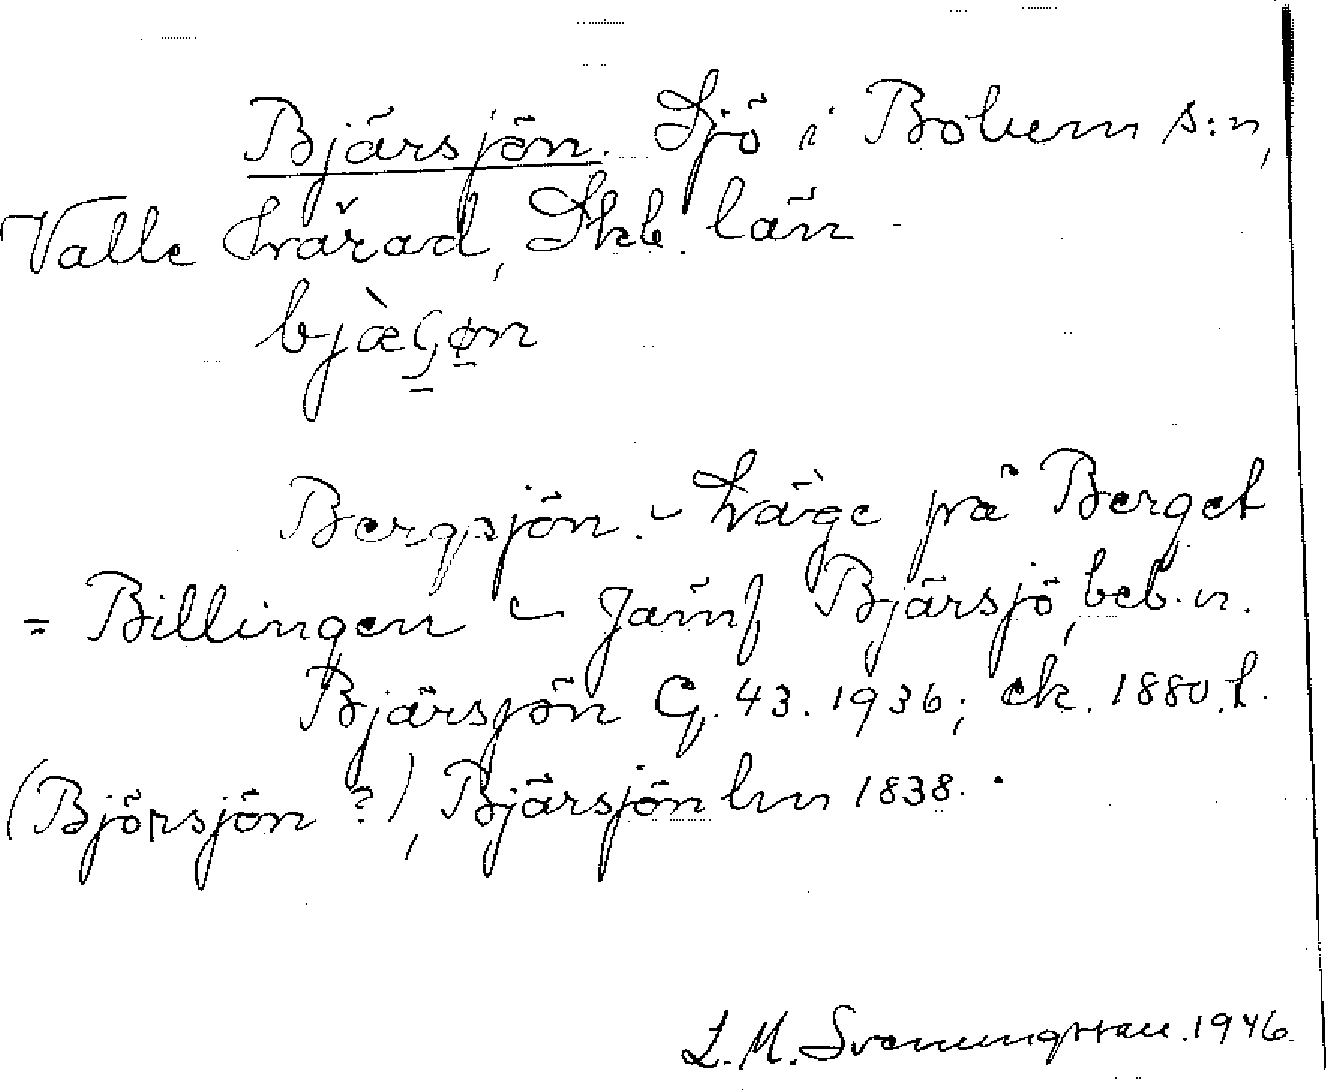 Bjärsjön. Sjö i Bolum s:n,
Valle härad, Skb. län -
bjæ̀Çøn
Bergsjön. - Läge på Berget
= Billingen - Jämf Bjärsjö, beb.n.
Bjärsjön G. 43. 1936; ek. 1880.t.
(Björsjön ?), Bjärsjön lm 1838.
L. M. Svenungsson. 1946